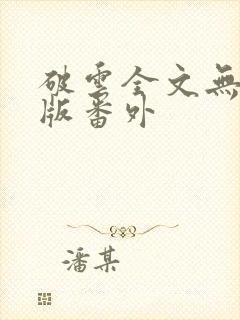 破雲全文無
版番外
潘某